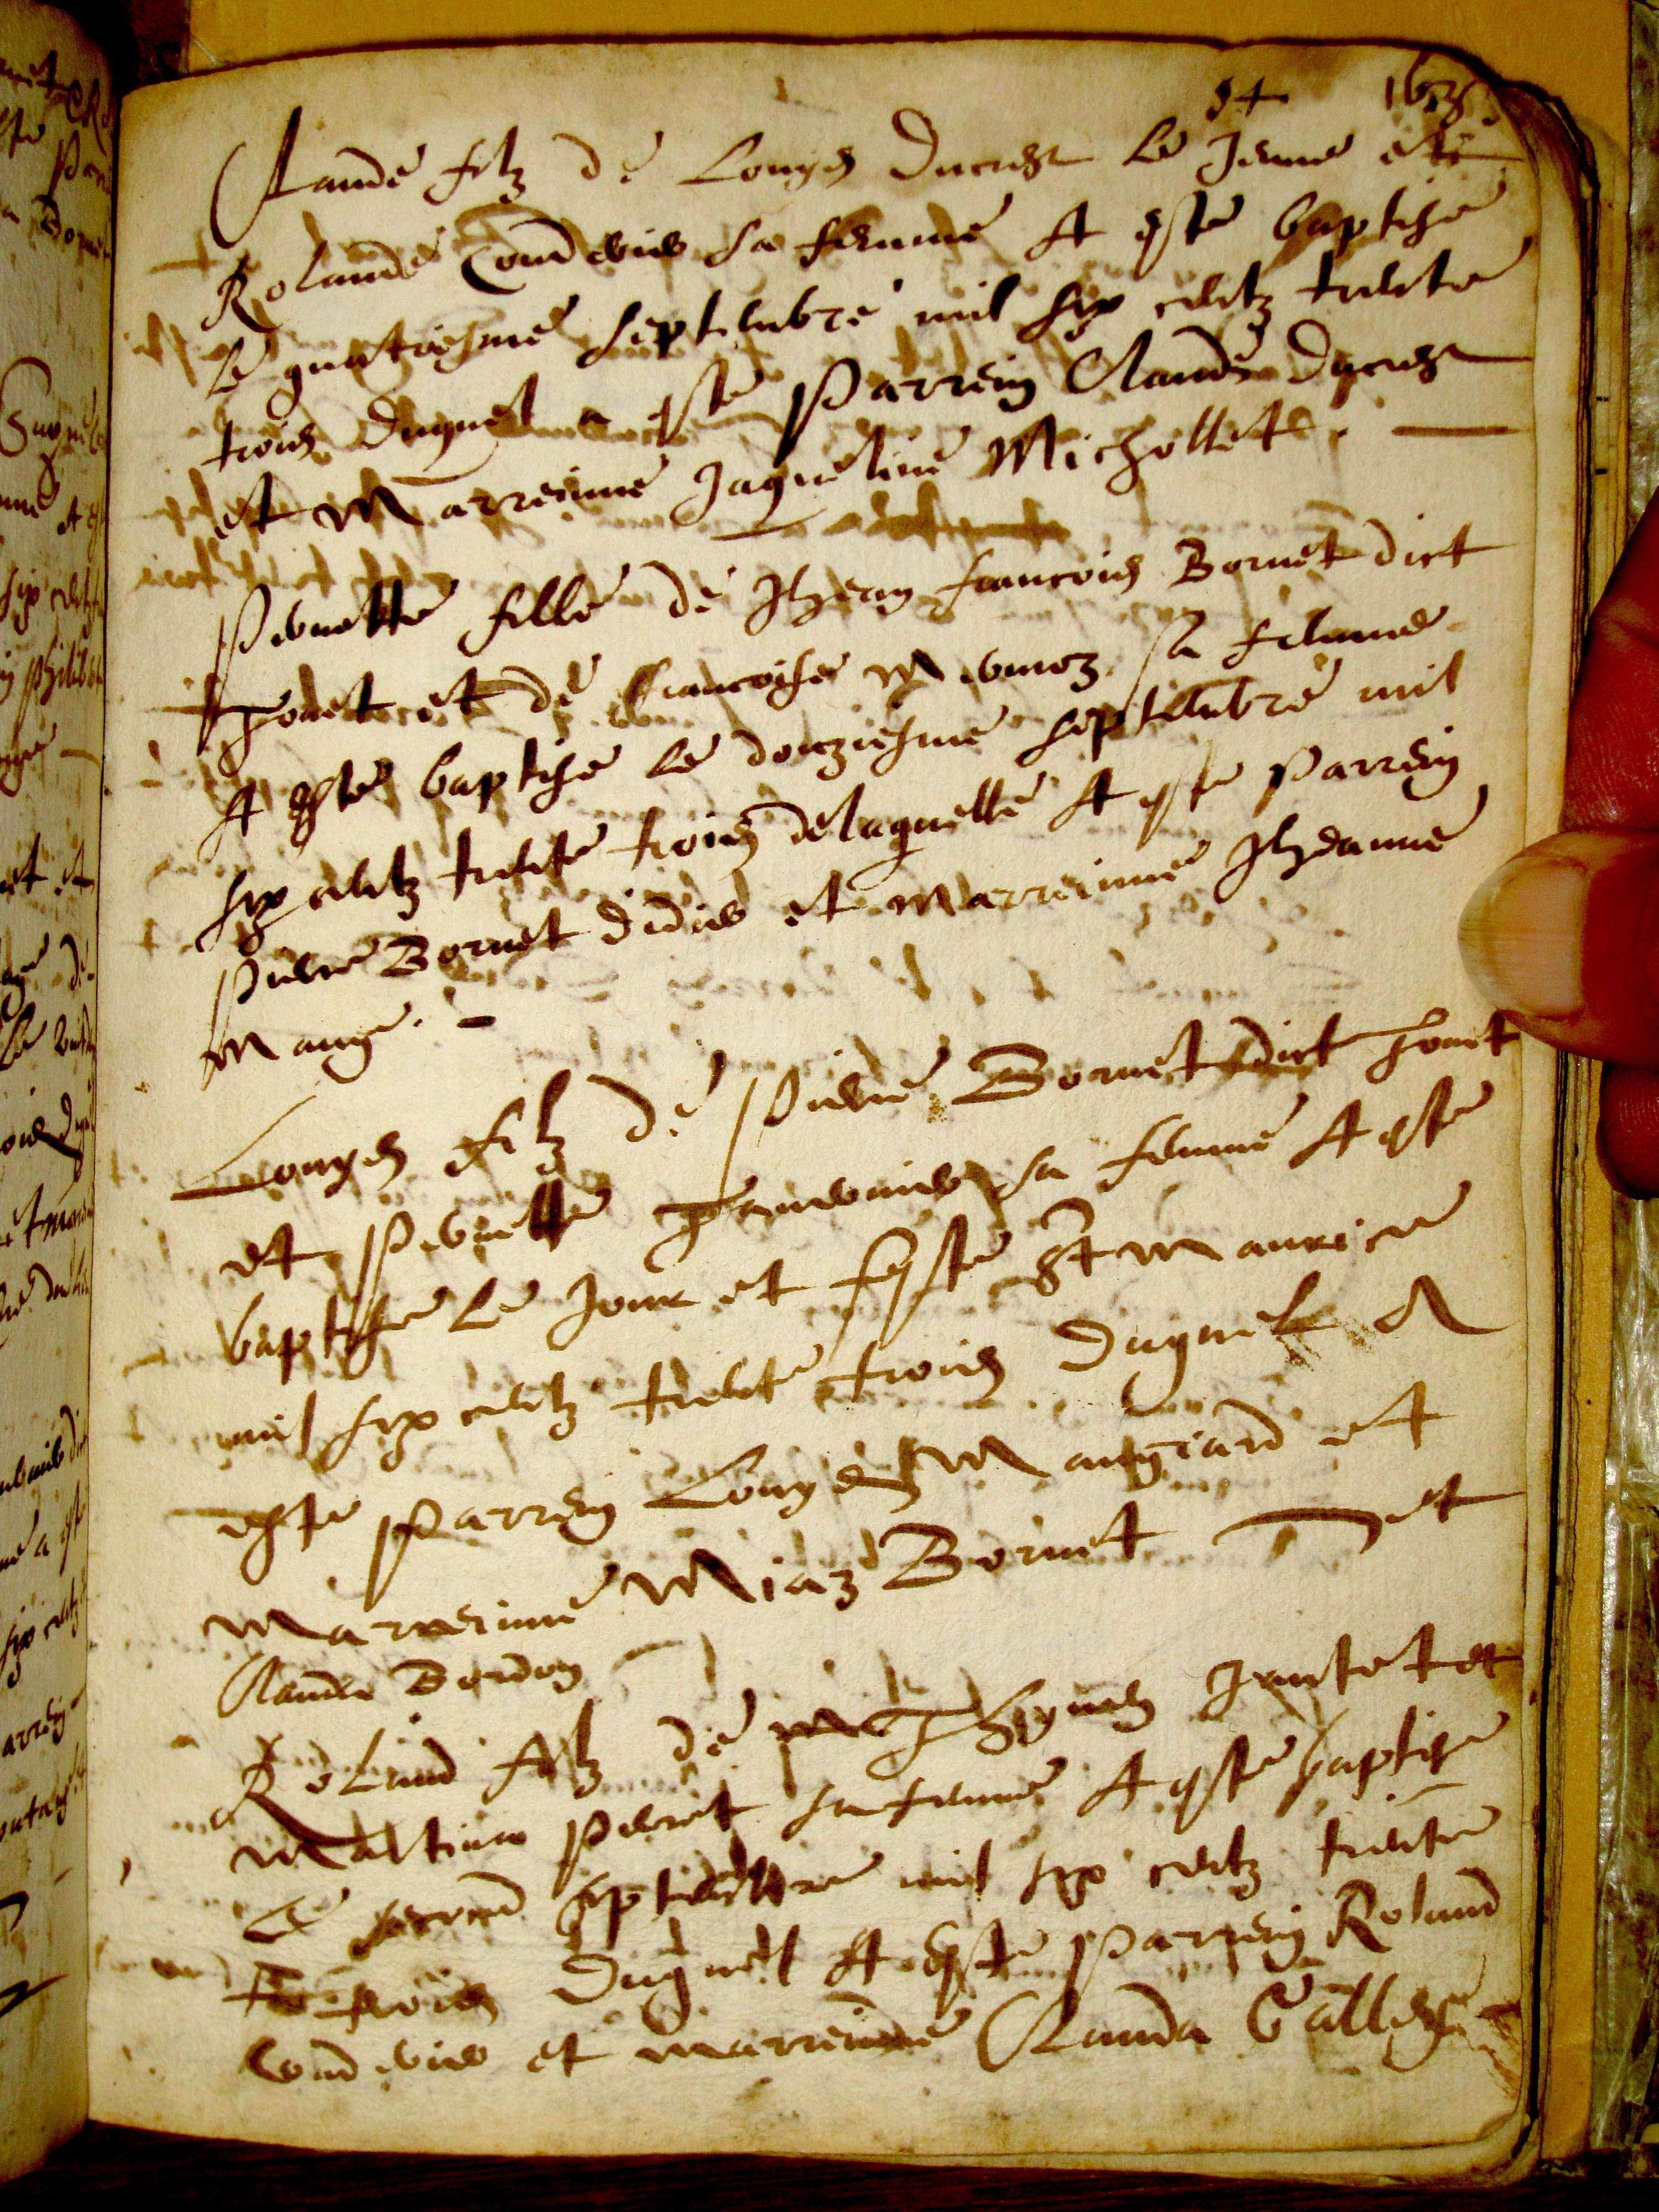 1633
Claude filz de Louys Ducrest le Jeune et de
Rolande Condevin sa femme A este baptise
le quatriesme septembre mil six centz trente
trois Duquel a este Parrein Claude Ducrest
et Marreinne Jaqueline Michollet. —
Pernette fille de Jhean francois Bornet dict
et de francoise sa femme
A este baptise le douziesme septembre mil
six centz trente trois delaquelle A este Parrein
Pierre Bornet et Marreinne Jheanne
Mange. —
Louys filz de Pierre Bornet dict
et Pernette sa femme A este
baptise le Jour et feste St Maurice
mil six centz trente trois Duquel A
este Parrein Louys Mangiard et
Marreinne Miaz Bornet et
Claude Bordon
Roland filz de et
Perret sa femme A este baptise
le second septembre mil six centz trente
trois Duquel A este Parrein Roland
Condevin et marreinne Clauda